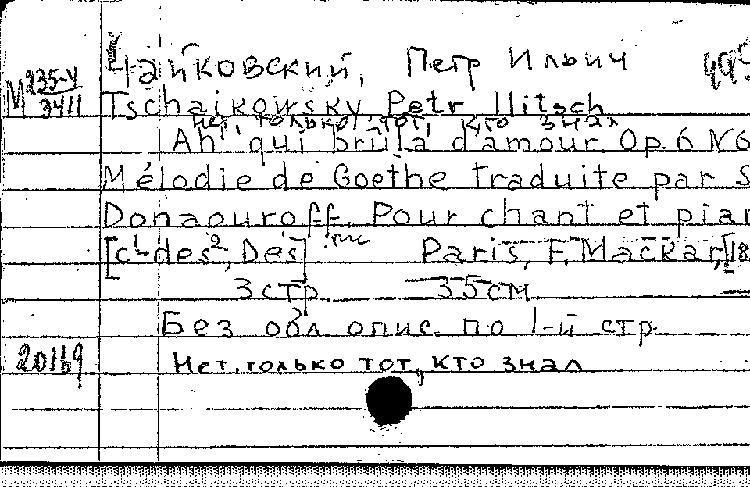 Чайковский, Петр Ильич
М 235-У
3411
Tschaikowsky Petr Ilitsch
нет, только тот, кто знал
Ah! qui brûla d'amour. Op. 6 N 6
Mélodie de Goethe traduite par S
Donaouroff. Pour chant et pian
[c¹-des², Des] Paris, F. Mackar, [18
3 стр. 35 см
Без обл. опис. по 1-й стр.
20169
Нет, только тот, кто знал